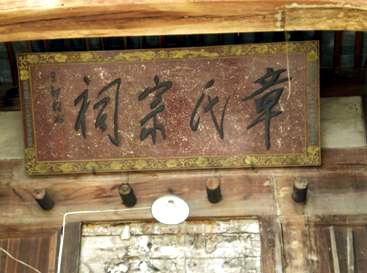 章氏宗祠